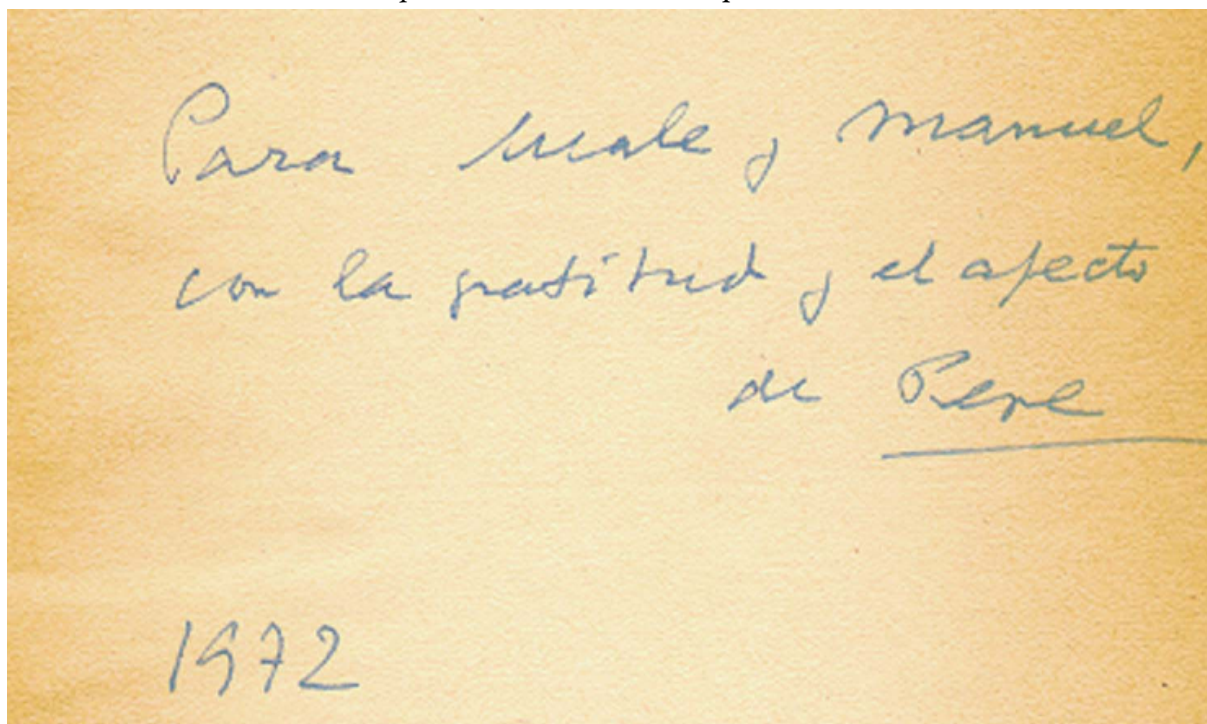 Para Male y Manuel,
con la gratitud y el afecto
de Pere
1972